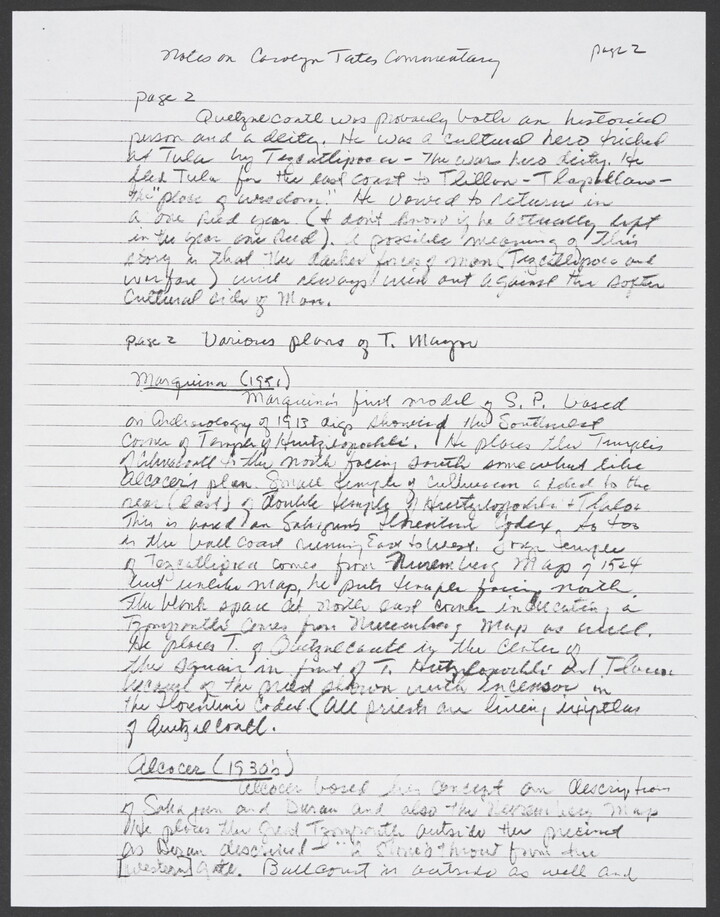 Notes on Carolyn Tates Commentary
page 2
page 2
Quetzalcoatl was probably both an historical
person and a deity. He was a cultural hero tricked
at Tula by Tezcatlipoca - the war hero deity. He
fled Tula for the east coast to Tlillan - Tlapallan -
the "place of wisdom." He vowed to return in
a one reed year. (I don't know if he actually left
in the year one Reed). A possible meaning of this
story is that the darker forces of man (Tezcatlipoca and
warfare) will always win out against the softer
cultural side of Man.
page 2 Various plans of T. Mayor
Marquina (1951)
Marquina's first model of S.P. based
on Archaeology of 1913 digs showed the Southwest
corner of Temple of Huitzilopochtli. He places the Temples
of to the north facing south somewhat like
Alcocer's plan. Small temple of added to the
rear (east) of double temple of Huitzilopochtli + Tlaloc
This is based on Sahagun's Florentine Codex, as too
is the ball court running East to West. temple
of Tezcatlipoca comes from Nuremberg Map of 1524
but unlike map, he puts temple facing north.
The blank space at north east corner indicating a
Tzompantli comes from Nuremberg Map as well.
He places T. of Quetzalcoatl in the center of
the square in front of T. Huitzilopochtli and Tlaloc
because of the priest shown with incensor in
the Florentine Codex (all priests are living
of Quetzalcoatl.
Alcocer (1930's)
Alcocer based his concept on description
of Sahagun and Duran and also the Nuremberg Map
He places the Great Tzompantli outside the precinct
as Duran described - "a stone's throw from the
[western] gate. Ballcourt is outside as well and